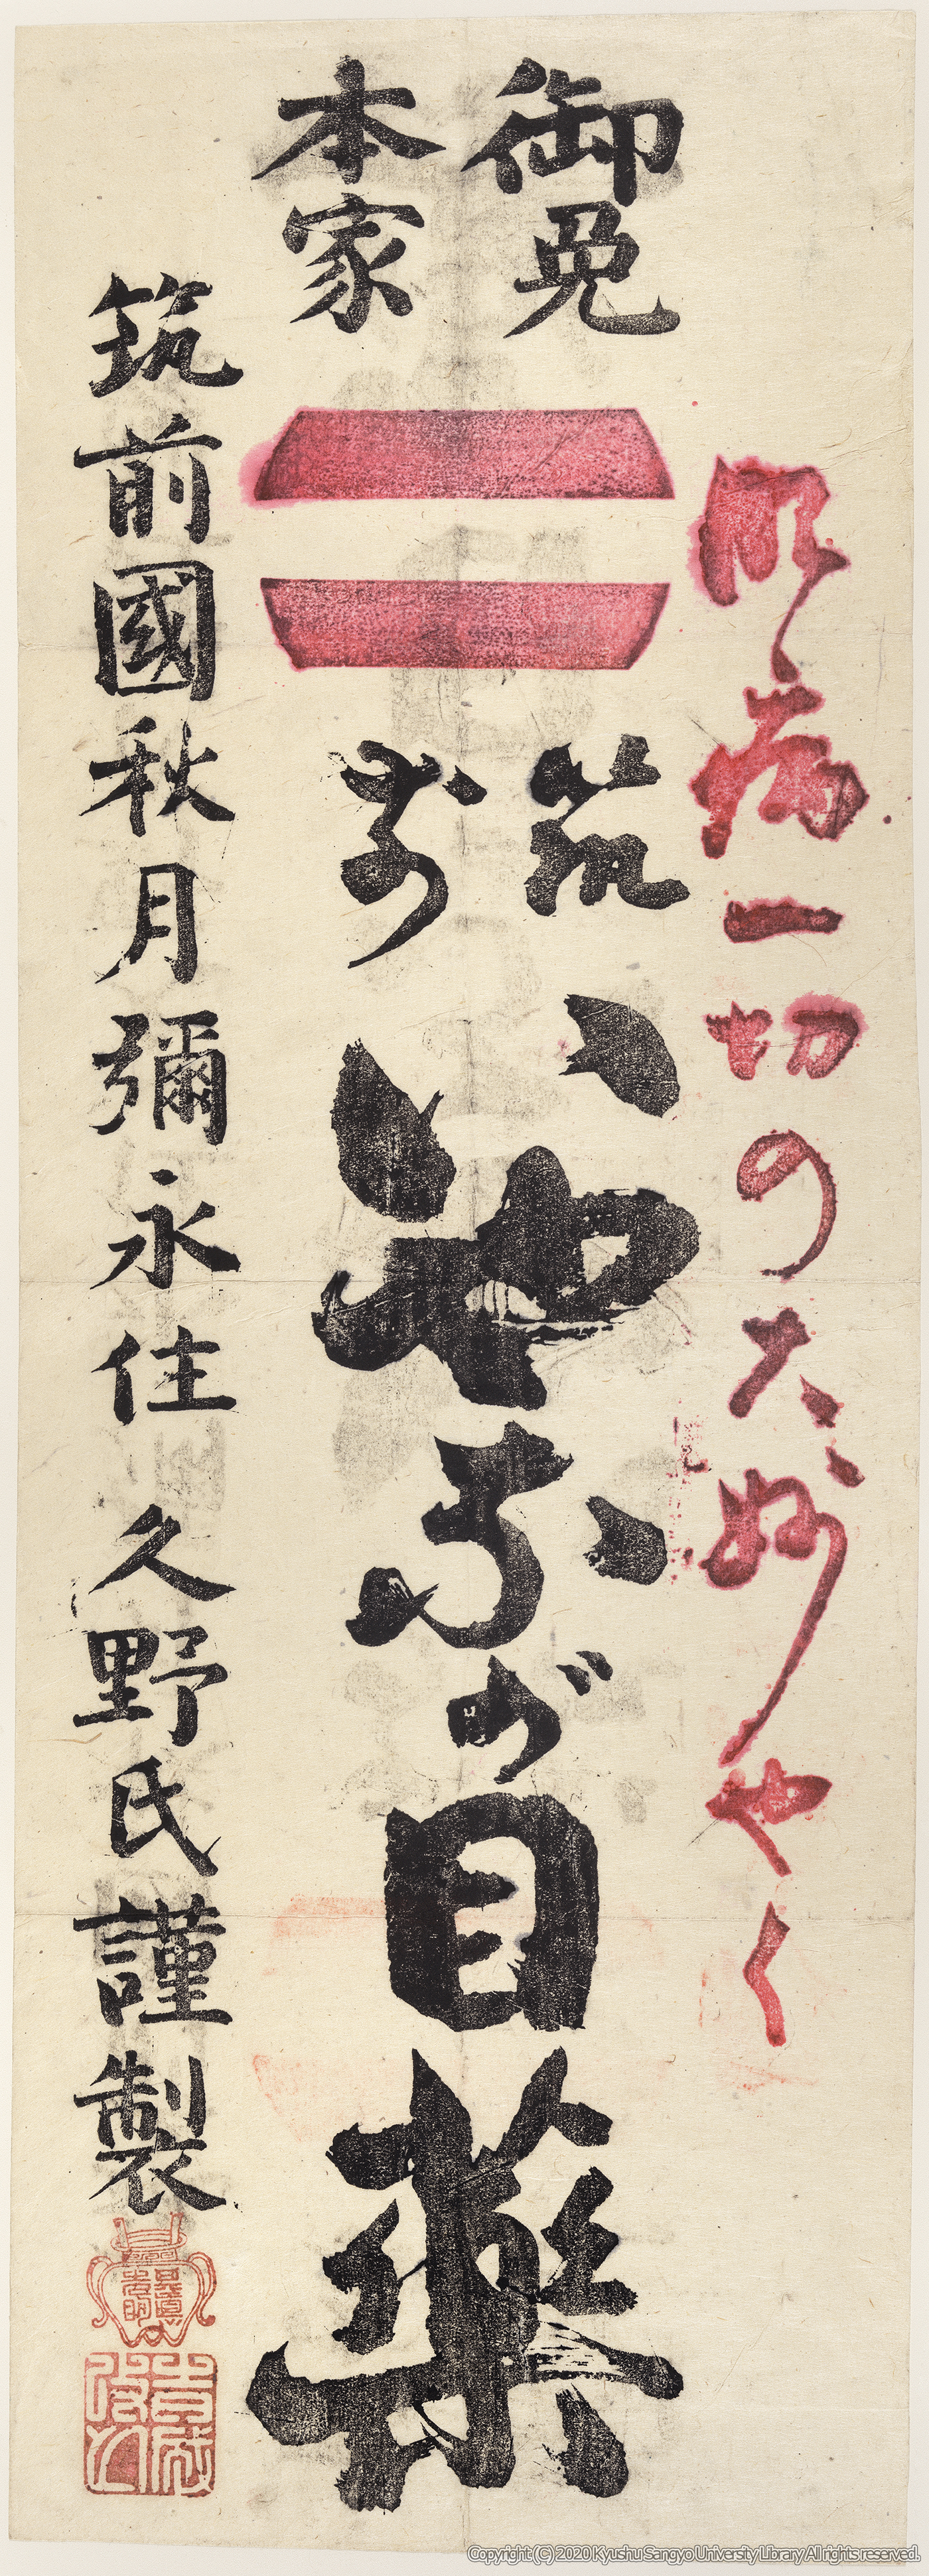 眼病一切の大妙やく
御免
本家
筑前
いやなが目薬
筑前國秋月彌永住 久野氏謹製
Copyright (C) 2020 Kyushu Sangyo University Library All rights reserved.